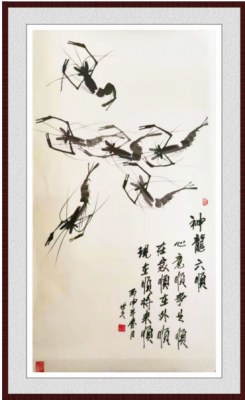 神龍六順
心意順事业順
在家順在外順
現在順將來順
丙申年春月